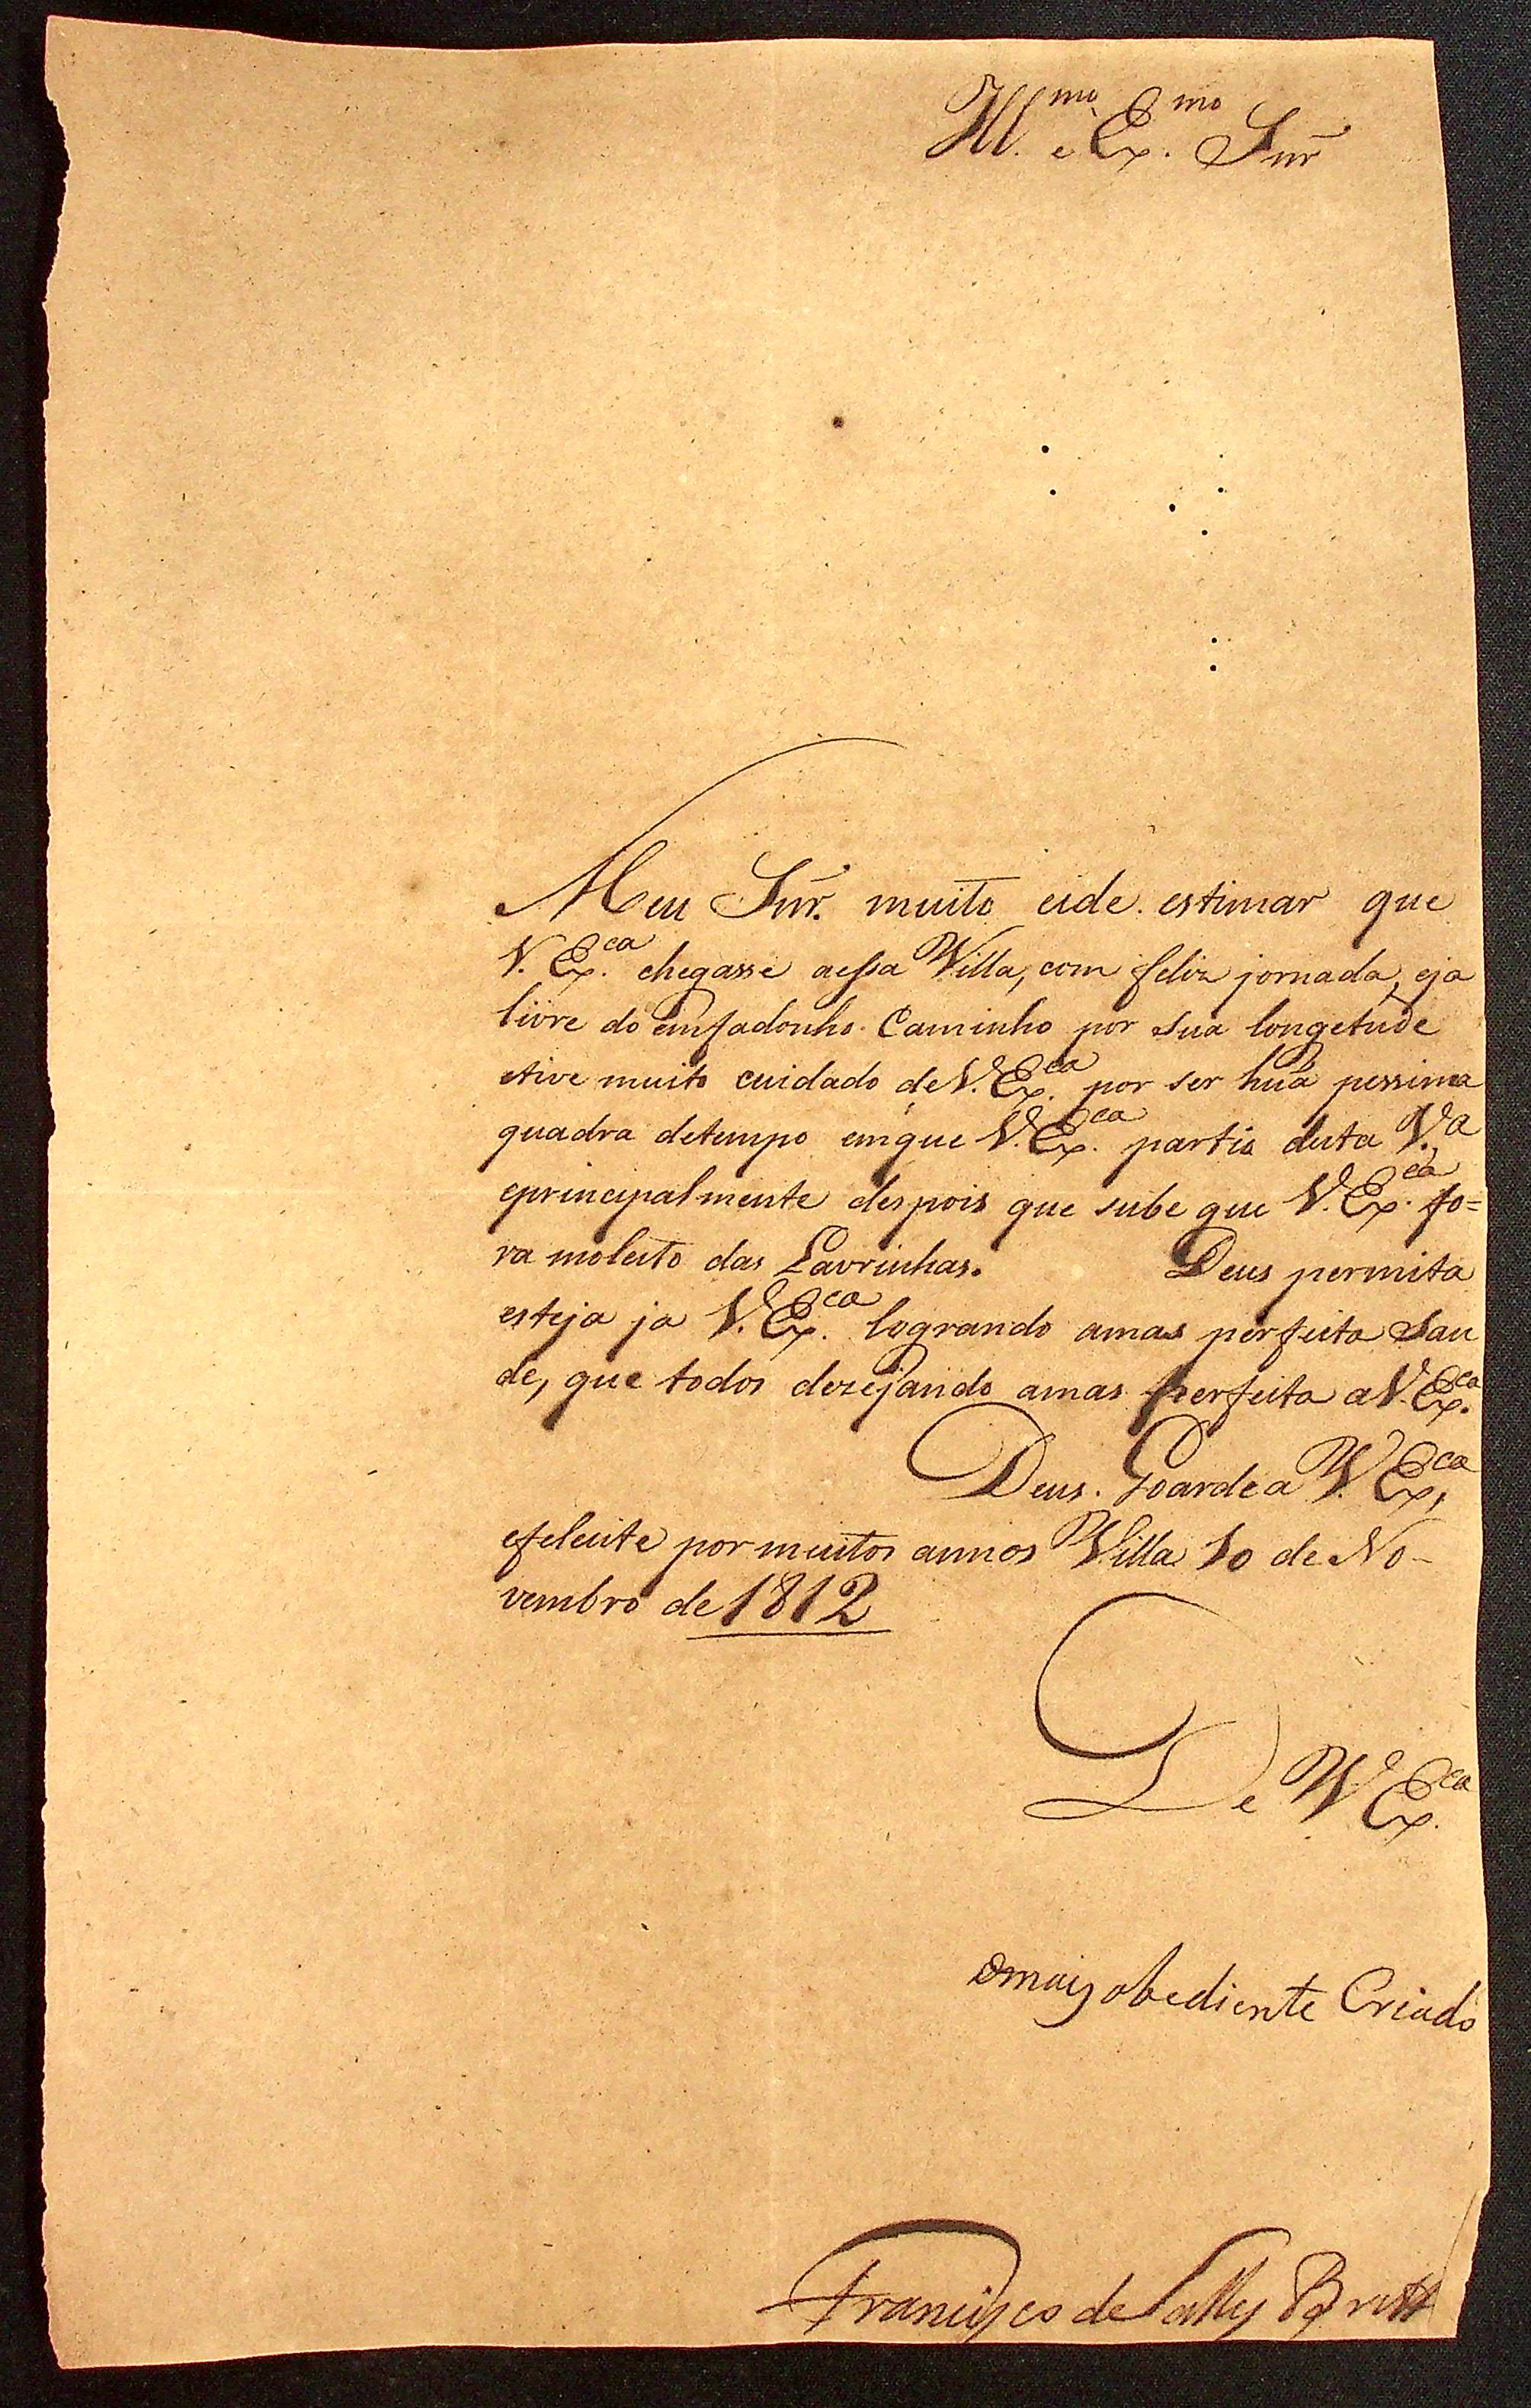 Ill.mo e Ex.mo Snr̃
Meu Snr̃. muito eide estimar que
V. Ex.ca chegasse aessa Villa, com feliz jornada, eja
livre do emfadonho Caminho por sua longetude
etive muito cuidado de V. Ex.ca por ser huã pessima
quadra detempo emque V. Ex.ca partio desta V.a
eprincipalmente despois que sube que V. Ex.ca fo=
ra molesto das Lavrinhas. Deus permita
esteja ja V. Ex.ca logrando amas perfeita Sau
de, que todos dezejando amas perfeita a V. Ex.ca
Deus. Goardea V. Ex.ca
efeleiste por muitos annos Villa 10 de No-
vembro de 1812
De V Ex.ca
omais obediente Criado
Francisco de Salles